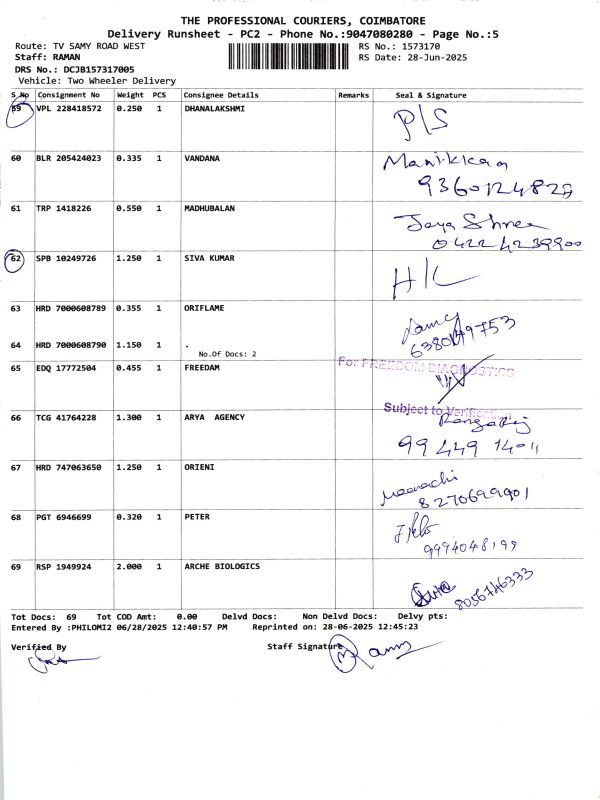 THE PROFESSIONAL COURIERS, COIMBATORE
Delivery Runsheet - PC2 - Phone No.:9047080280 - Page No.:5
Route: TV SAMY ROAD WEST
RS No.: 1573170
Staff: RAMAN
RS Date: 28-Jun-2025
DRS No.: DCJB157317005
Vehicle: Two Wheeler Delivery
S.No Consignment No Weight PCS Consignee Details Remarks Seal & Signature
59 VPL 228418572 0.250 1 DHANALAKSHMI P/S
60 BLR 205424023 0.335 1 VANDANA
9360124828
61 TRP 1418226 0.550 1 MADHUBALAN Jaya Shree
0422 4239900
62 SPB 10249726 1.250 1 SIVA KUMAR H/L
63 HRD 7000608789 0.355 1 ORIFLAME
64 HRD 7000608790 1.150 1 .
No.Of Docs: 2
65 EDQ 17772504 0.455 1 FREEDAM
For FREEDOM DIAGNOSTICS
Subject to Verification
66 TCG 41764228 1.300 1 ARYA AGENCY
99449 14011
67 HRD 747063650 1.250 1 ORIENI Meenachi
8270699901
68 PGT 6946699 0.320 1 PETER
9994048199
69 RSP 1949924 2.000 1 ARCHE BIOLOGICS
8056746333
Tot Docs: 69 Tot COD Amt: 0.00 Delvd Docs: Non Delvd Docs: Delvy pts:
Entered By :PHILOMI2 06/28/2025 12:40:57 PM Reprinted on: 28-06-2025 12:45:23
Verified By
Staff Signature